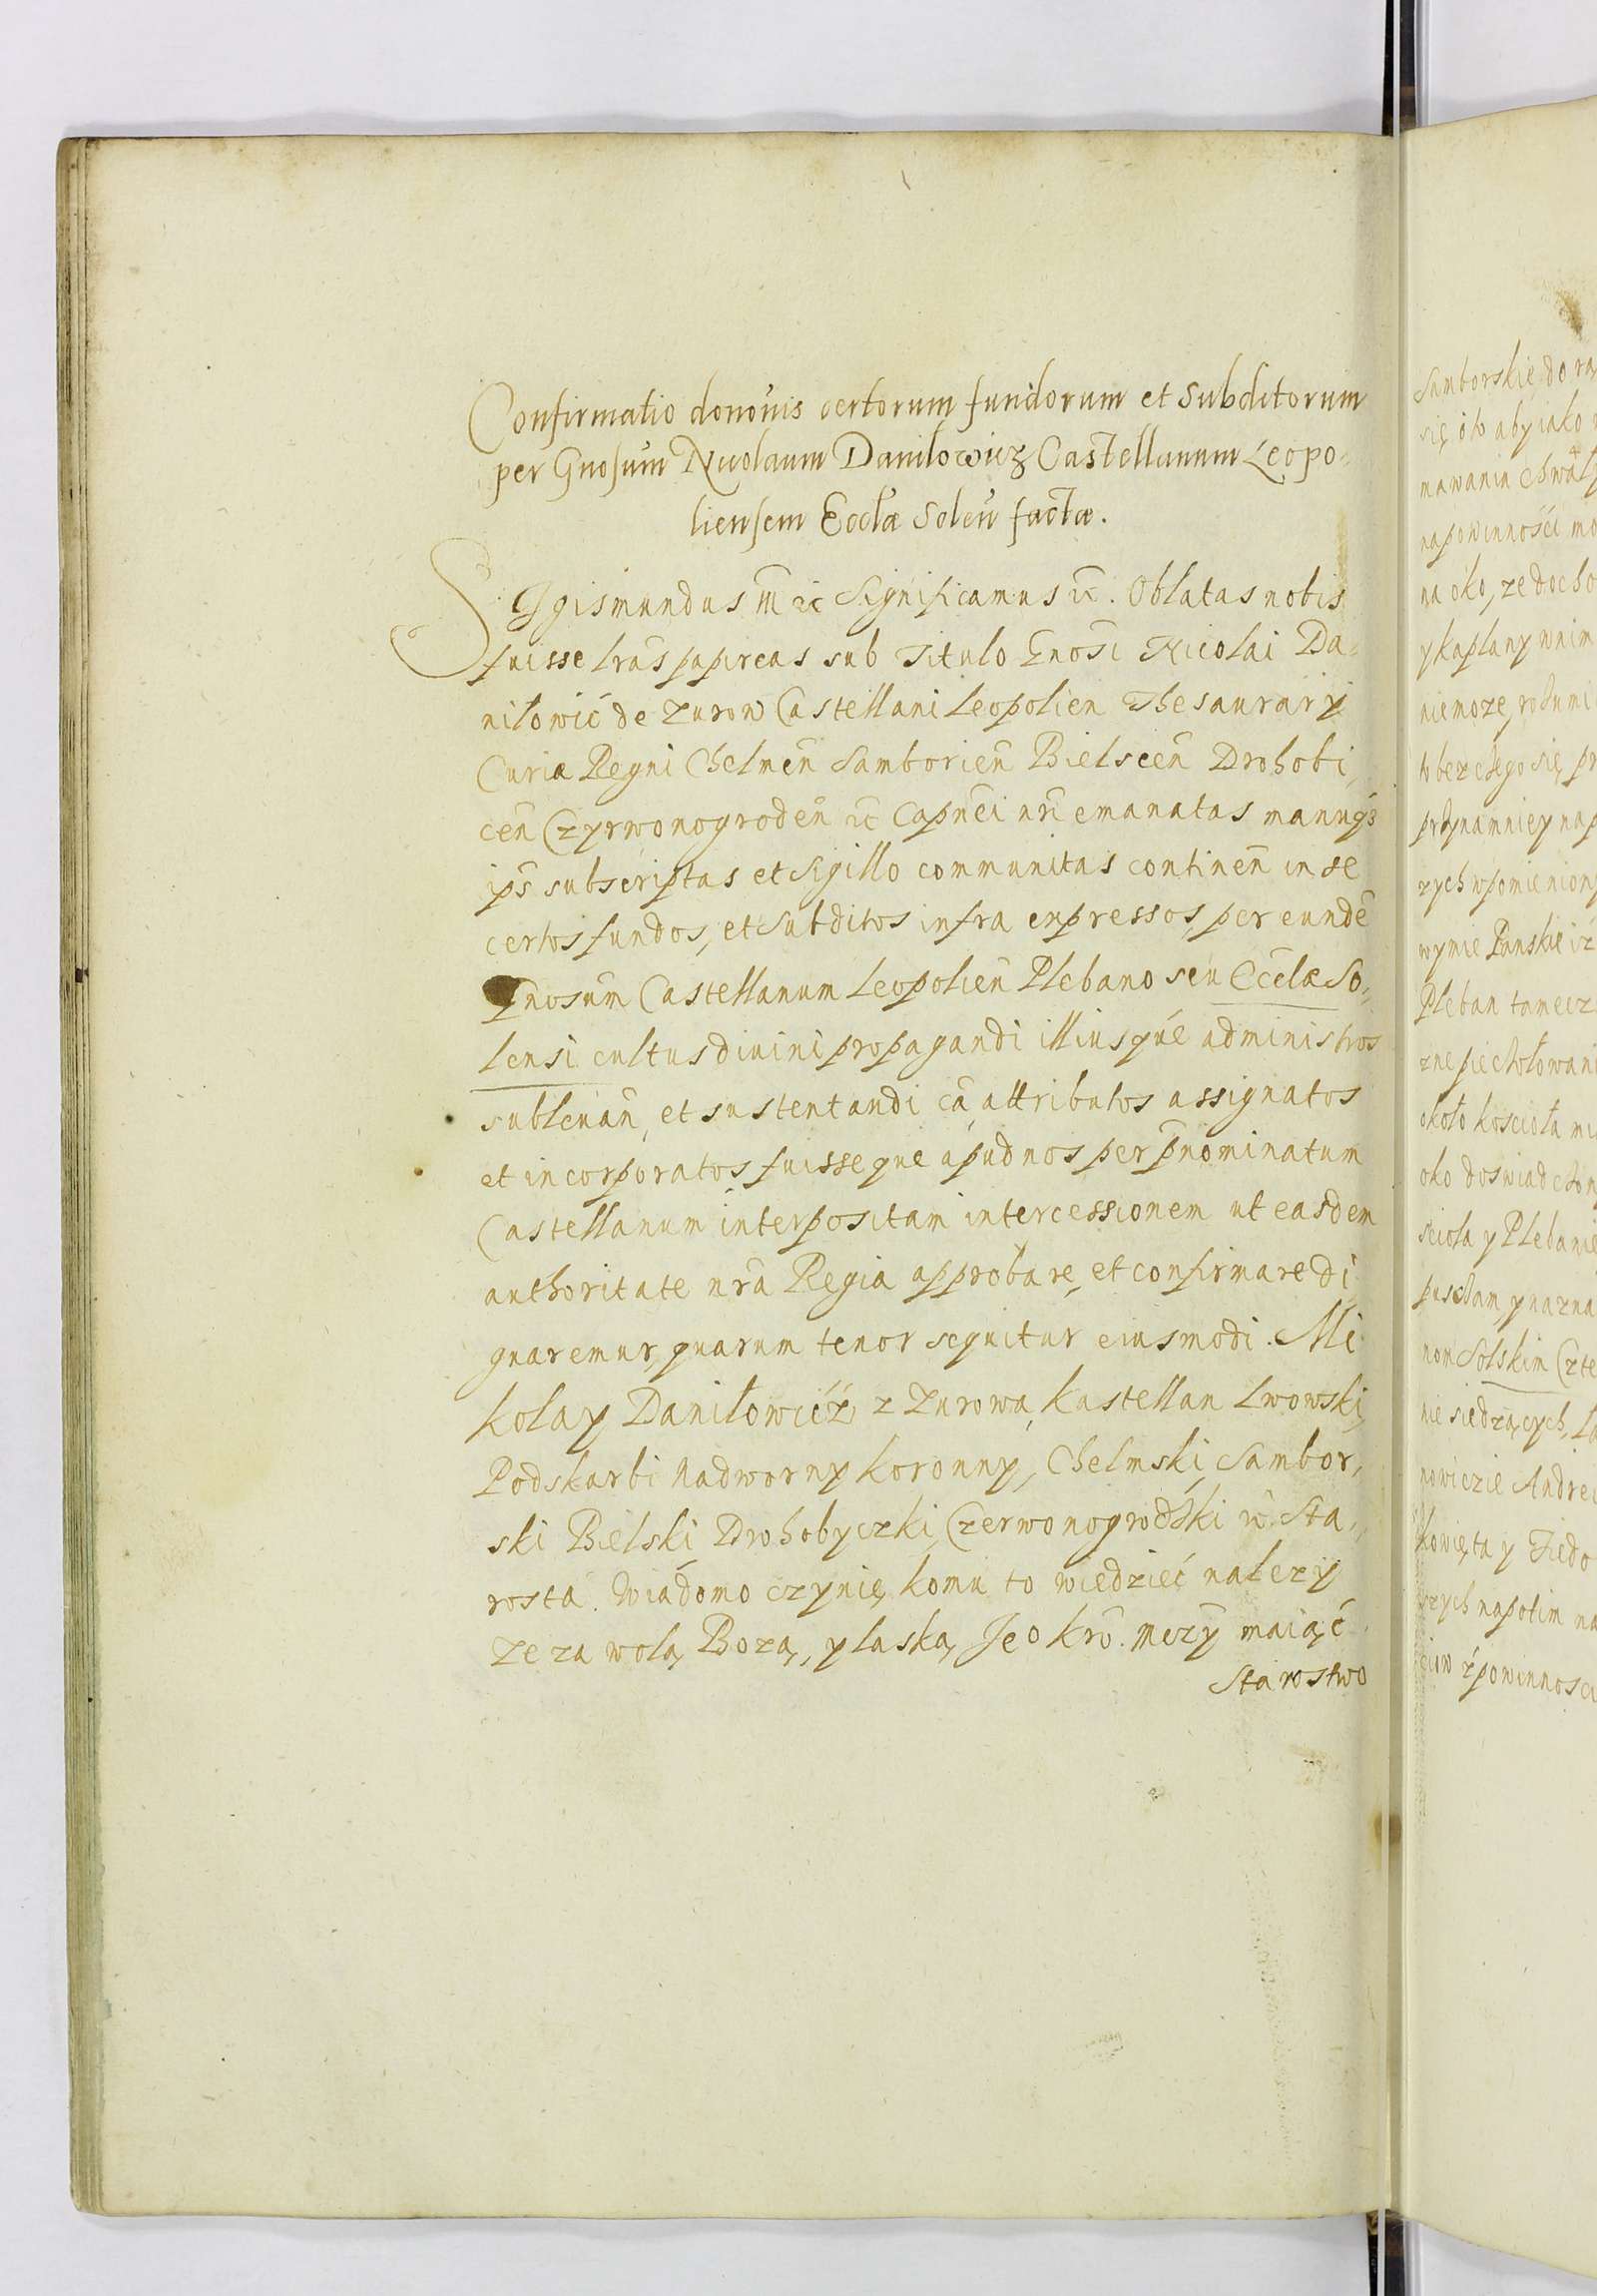 Confirmatio donōuis certorum fundorum et Subditorum
per Gnosum Nicolaum Danilowicz Castellanum Leopo-
liensem Ecclæ Soleñ factæ.
SIgismundus III ꝛc Significamus ꝛc. Oblatas nobis
fuisse lrãs papireas sub Titulo Gnosi Nicolai Da-
niłowić de Zurow Castellani Leopolien Thesaurarij
Curiæ Regni Chelmeñ Samborieñ Bielsceñ Drohobi,
ceñ Czyrwonogrodeñ ꝛc Capnei nri emanatas manuqȝ
ips subscriptas et Sigillo communitas contineñ in se
certos fundos, et Subditos infra expressos, per eundē
Gnosum Castellanum Leopolieñ Plebano seu Ecclæ So,
lensi cultus diuini propagandi illiusque administros
subleuañ, et sustentandi cā attributos assignatos
et incorporatos, fuisseque apud nos per pñominatum
Castellanum interpositam intercessionem ut easdem
authoritate nrã Regia approbare, et confirmare di
gnaremur, quarum tenor sequitur eiusmodi. Mi
kolay Daniłowicź z Zurowa, Kastellan Lwowski,
Podskarbi Nadworny koronny, Chelmski, Sambor,
ski Bielski Drohobyczki, Czerwonogrodśki ꝛc. Sta,
rosta. Wiadomo czynię, komu to wiedzieć nalezy
Ze za wolą Bozą, y laską Jeo Krõ. Mczy maiąć
Starostwo
Samborskie do rą
się oto aby iako
mawania Chwały
napowinności mo
na oko, ze docho
y kaplany wnim
niemoze,
to bez
przynamniey nap
zych wpomieniony
wymie Panskie iz
Pleban tamecz
około koscioła
oko doswiadczon
scioła y Plebanie
puscłam, y nazna
nom Solskim Czte
nie siedzących,
nowiczie Andrei
kowięta y Fiedo
szych napotim na
ciow z powinnosci